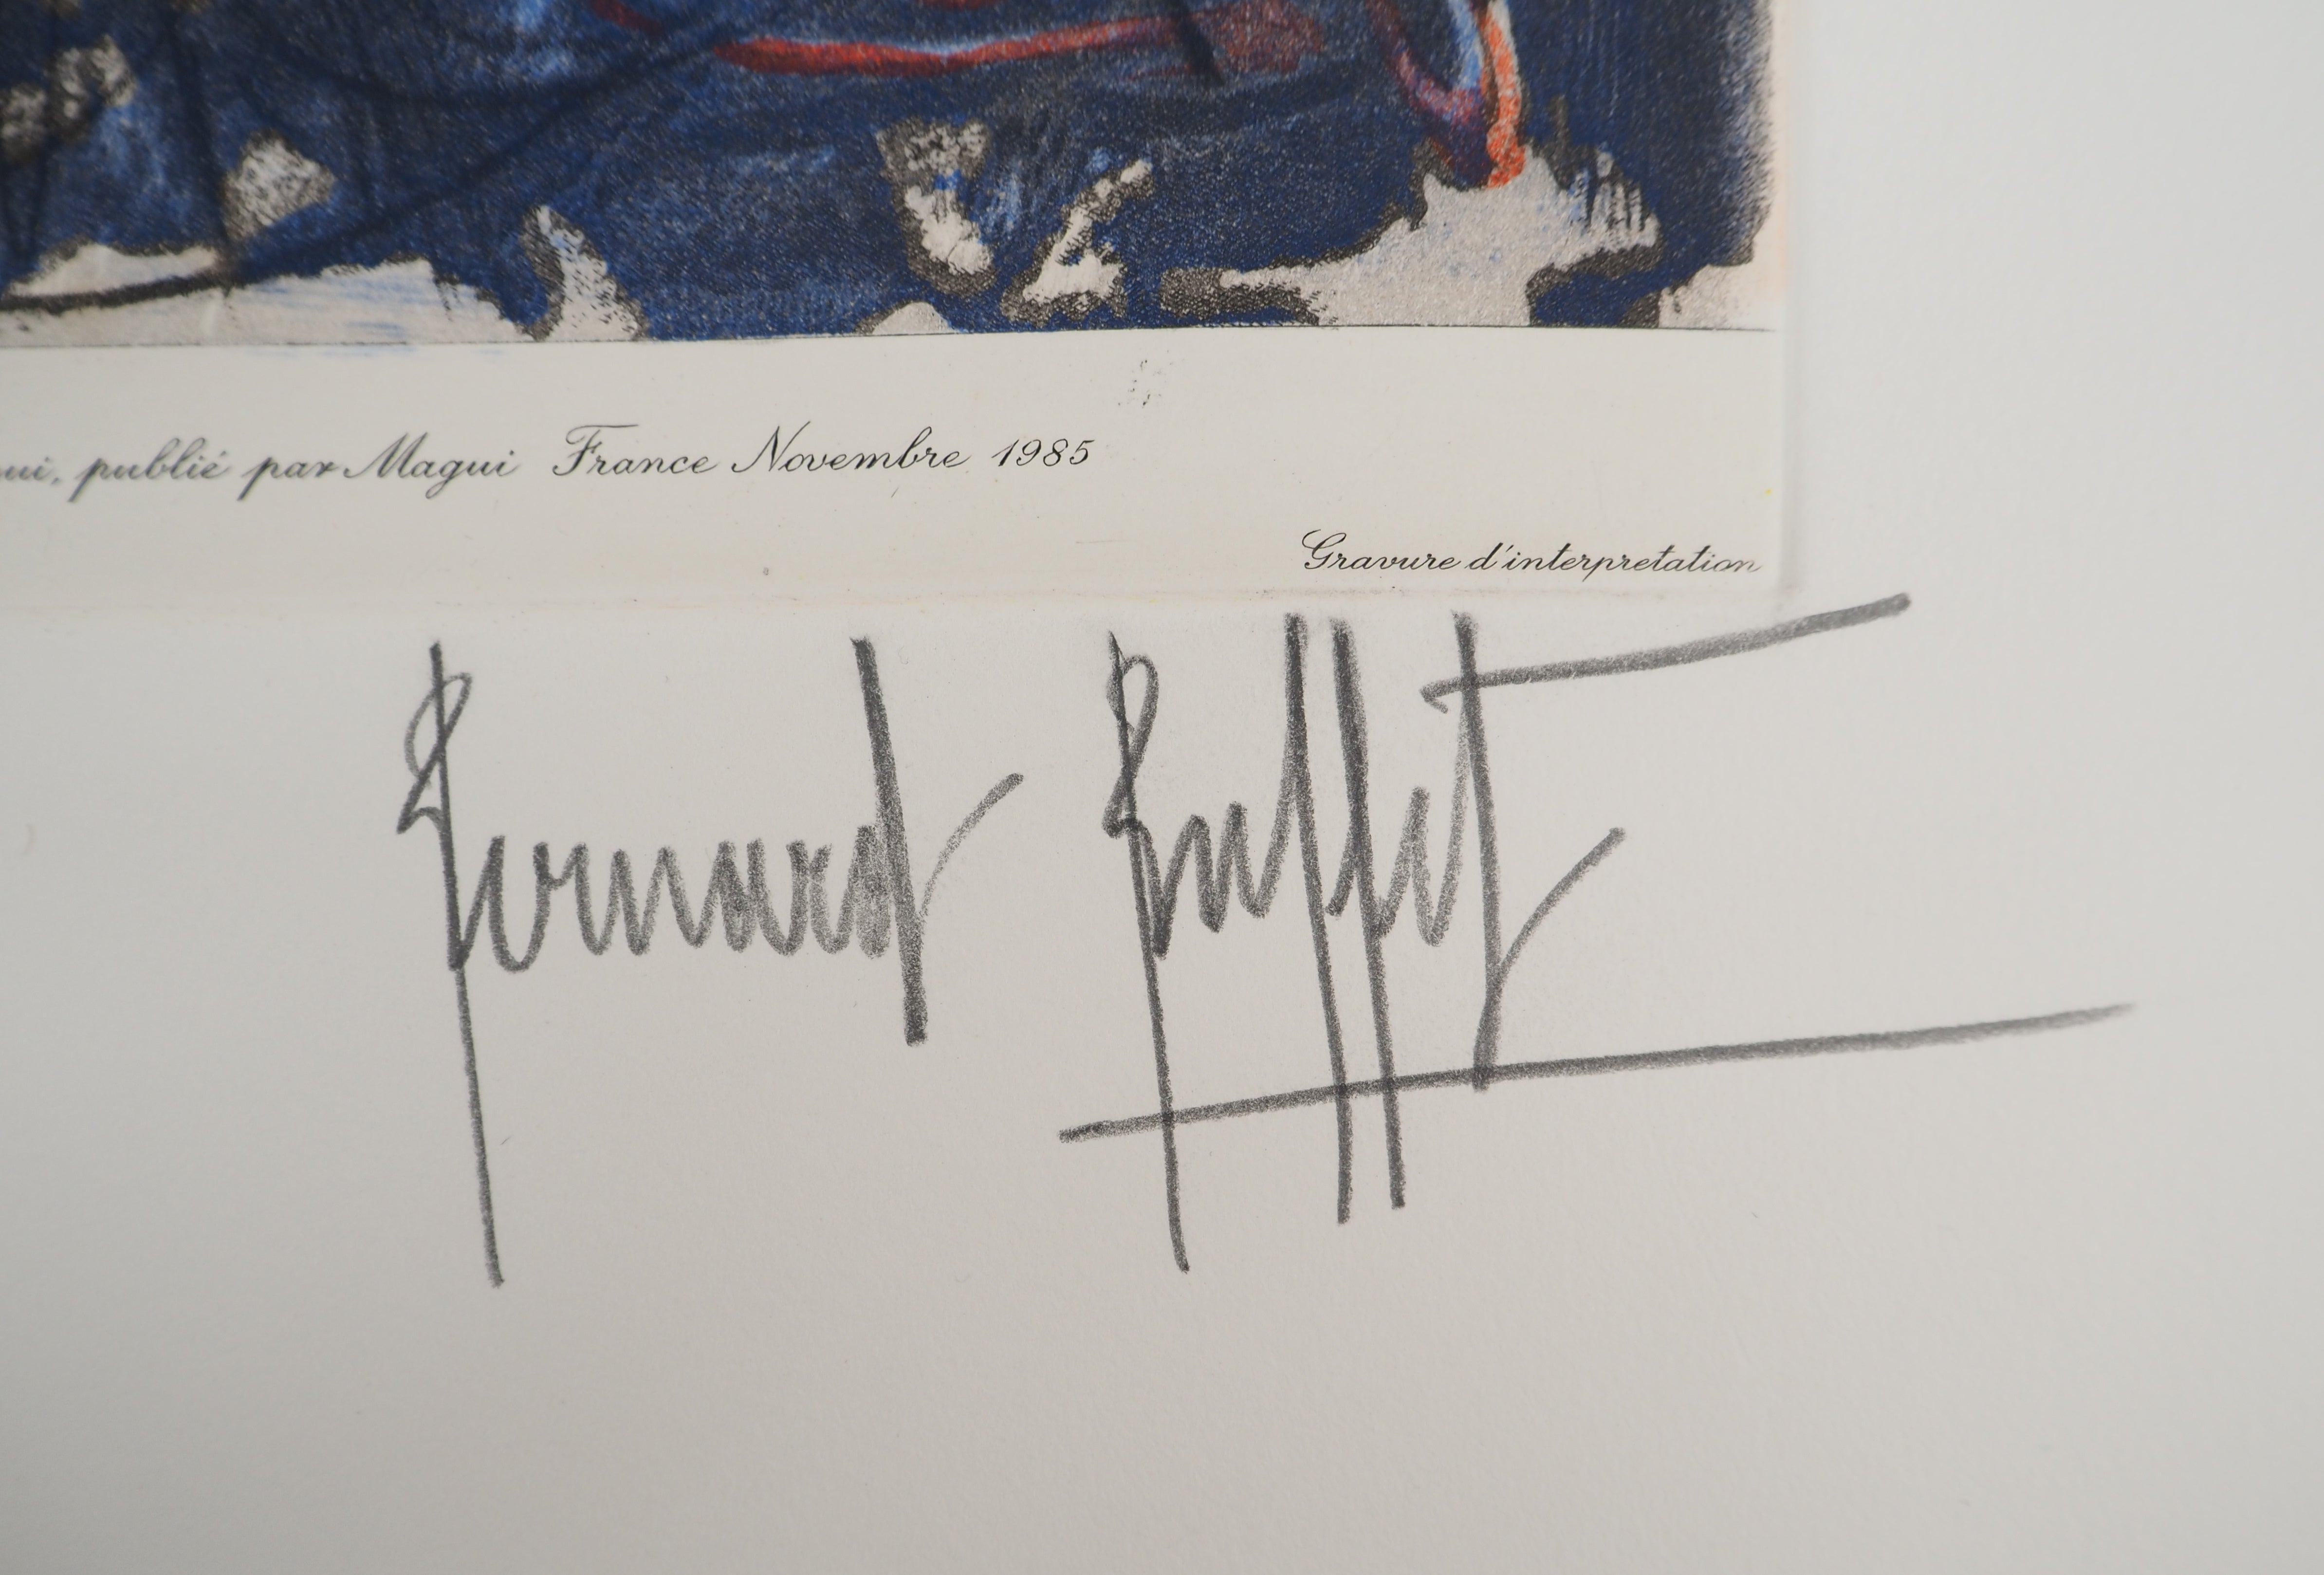 ui, publié par Magui France Novembre 1985
Gravure d'interpretation
Bernard Buffet